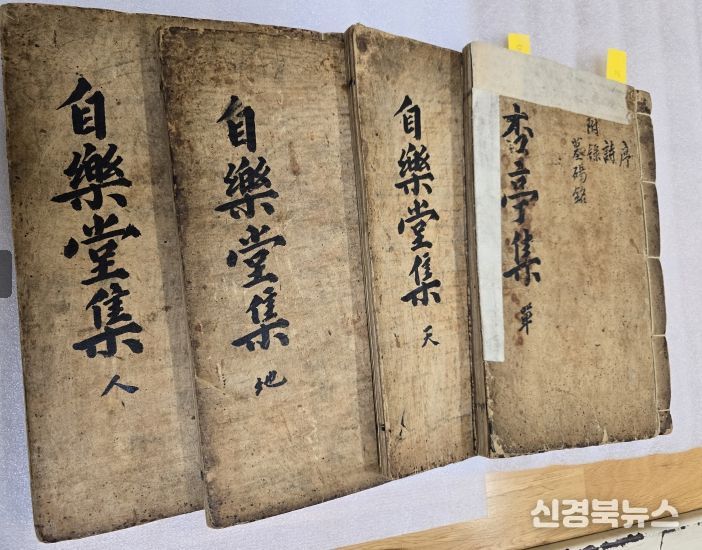 自樂堂集
人
自樂堂集
地
自樂堂集
天
序
詩
附錄
墓碣銘
杏亭集
單
신경북뉴스